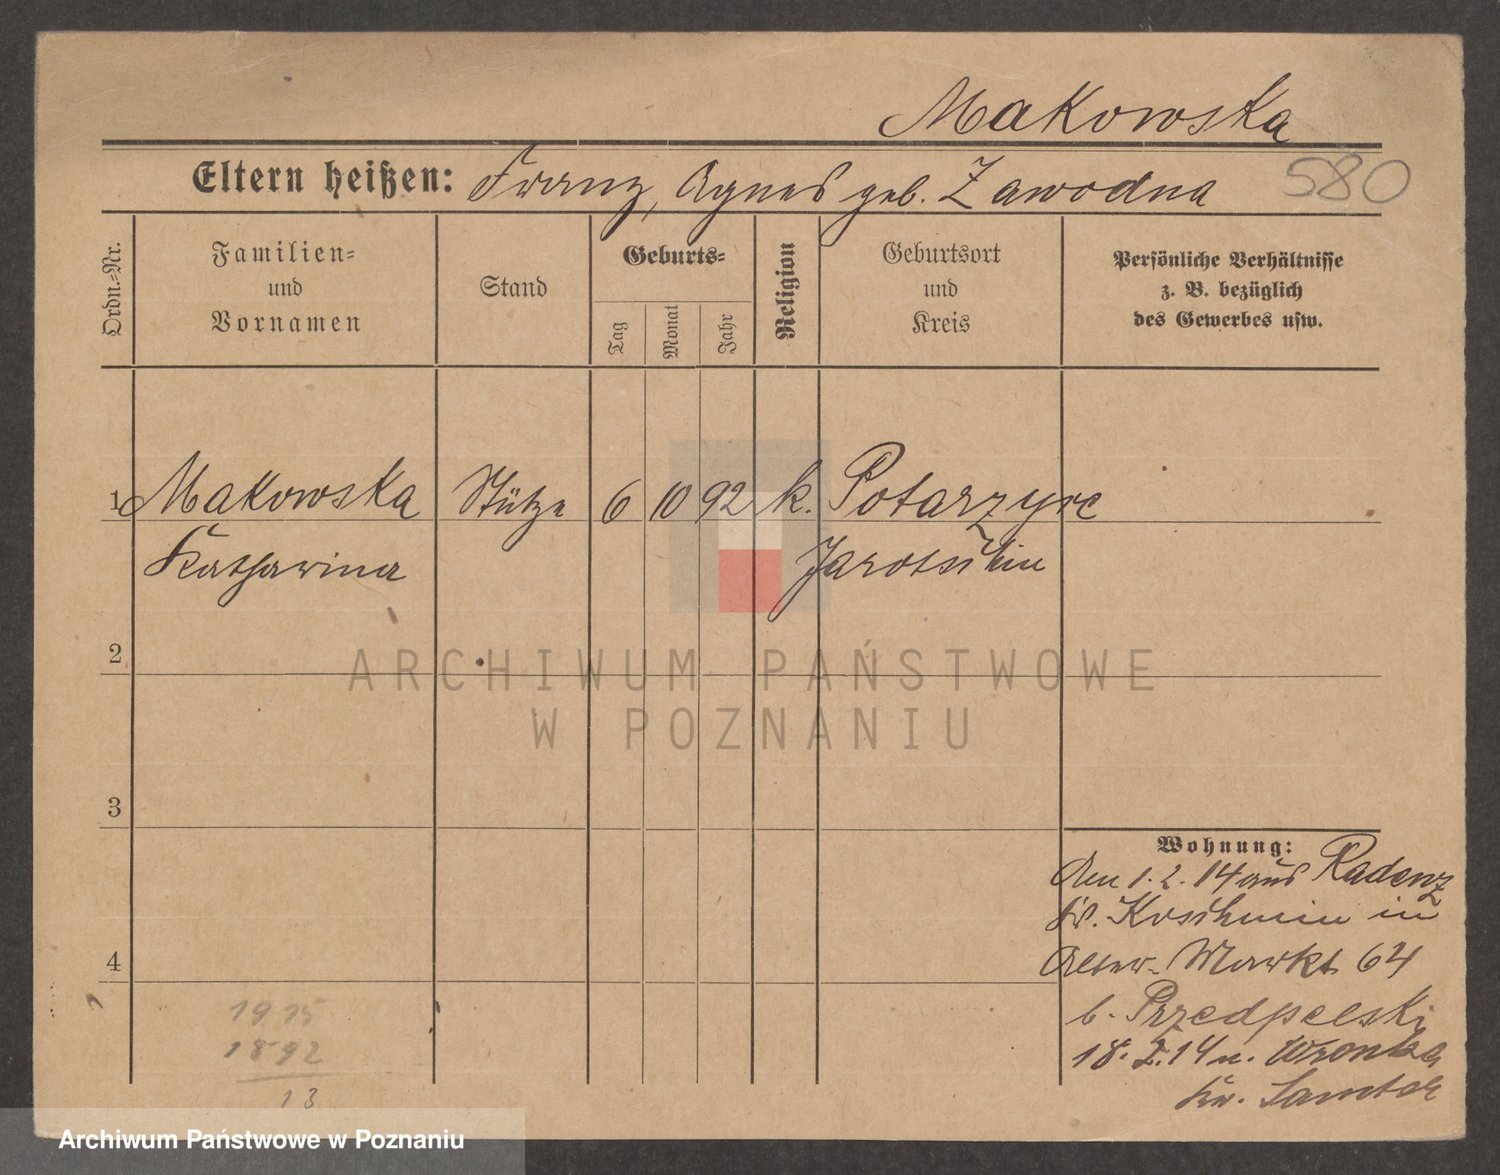 Makowska
580
Eltern heißen: Franz, Agnes geb. Zawodna
Ordn.-Nr.
Familien-
und
Vornamen
Stand
Geburts-
Tag
Monat
Jahr
Religion
Geburtsort
und
Kreis
Persönliche Verhältnisse
z. B. bezüglich
des Gewerbes usw.
1 Makowska Stütze 6 10 92 k. Potarzyce
Katharina Jarotschin
2
ARCHIWUM PAŃSTWOWE
W POZNANIU
3
Wohnung:
Den 1. 2. 14 aus Radenz
Kr. Koschmin in
Alter Markt 64
b. Przedpelski
18. 2. 14 n. Wronke
Kr. Samter
4
1915
1892
13
Archiwum Państwowe w Poznaniu